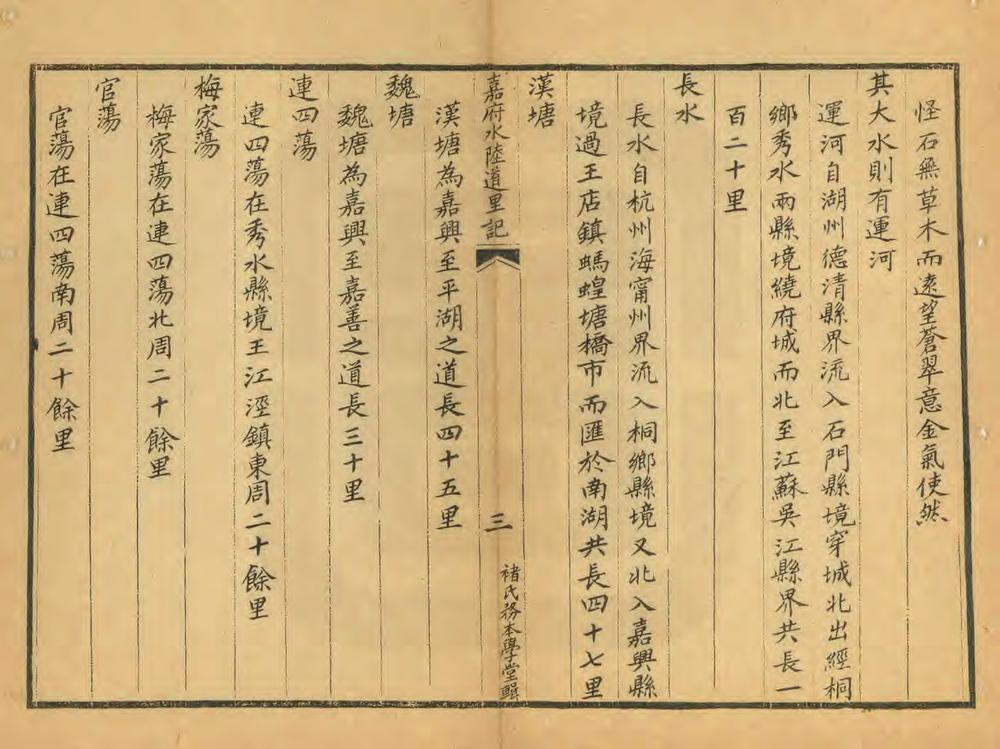 怪石無草木而遠望蒼翠意金氣使然
其大水則有運河
運河自湖州德清縣界流入石門縣境穿城北出經桐
鄉秀水兩縣境繞府城而北至江蘇吳江縣界共長一
百二十里
長水
長水自杭州海甯州界流入桐鄉縣境又北入嘉興縣
境過王店鎮螞蝗塘橋市而匯於南湖共長四十七里
漢塘
嘉府水陸道里記
三
褚氏務本學堂輯
漢塘為嘉興至平湖之道長四十五里
魏塘
魏塘為嘉興至嘉善之道長三十里
連四蕩
連四蕩在秀水縣境王江涇鎮東周二十餘里
梅家蕩
梅家蕩在連四蕩北周二十餘里
官蕩
官蕩在連四蕩南周二十餘里